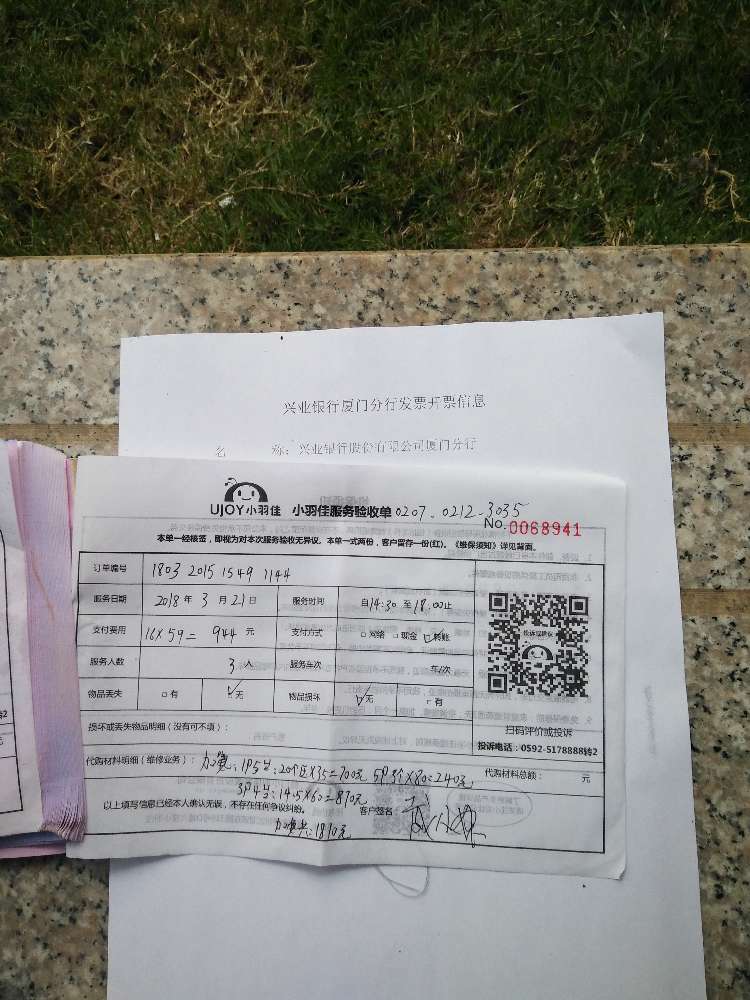 兴业银行厦门分行发票开票信息
名 称：兴业银行股份有限公司厦门分行
UJOY小羽佳 小羽佳服务验收单 0207.0212-3035
No.0068941
本单一经接签，即视为对本次服务验收无异议。本单一式两份，客户留存一份(红)。《维保须知》详见背面。
订单编号 1803 2015 1549 1144
服务日期 2018年3月21日 服务时间 自14:30至18:00止
支付费用 16×59=944元 支付方式 □网络 □现金 □转账
服务人数 3人 服务车次 车/次
物品丢失 □有 □无 物品损坏 □无 □有
扫码评价或投诉
投诉电话：0592-5178888转2
损坏或丢失物品明细（没有可不填）：
代购材料明细（维修业务）：加氟：1P5台：20个压×35=700元 5P3个×80=240元
代购材料总额： 元
3P4台：14.5×60=870元
以上填写信息已经本人确认无误，不存在任何争议纠纷。 客户签名：
加氟共：1810元